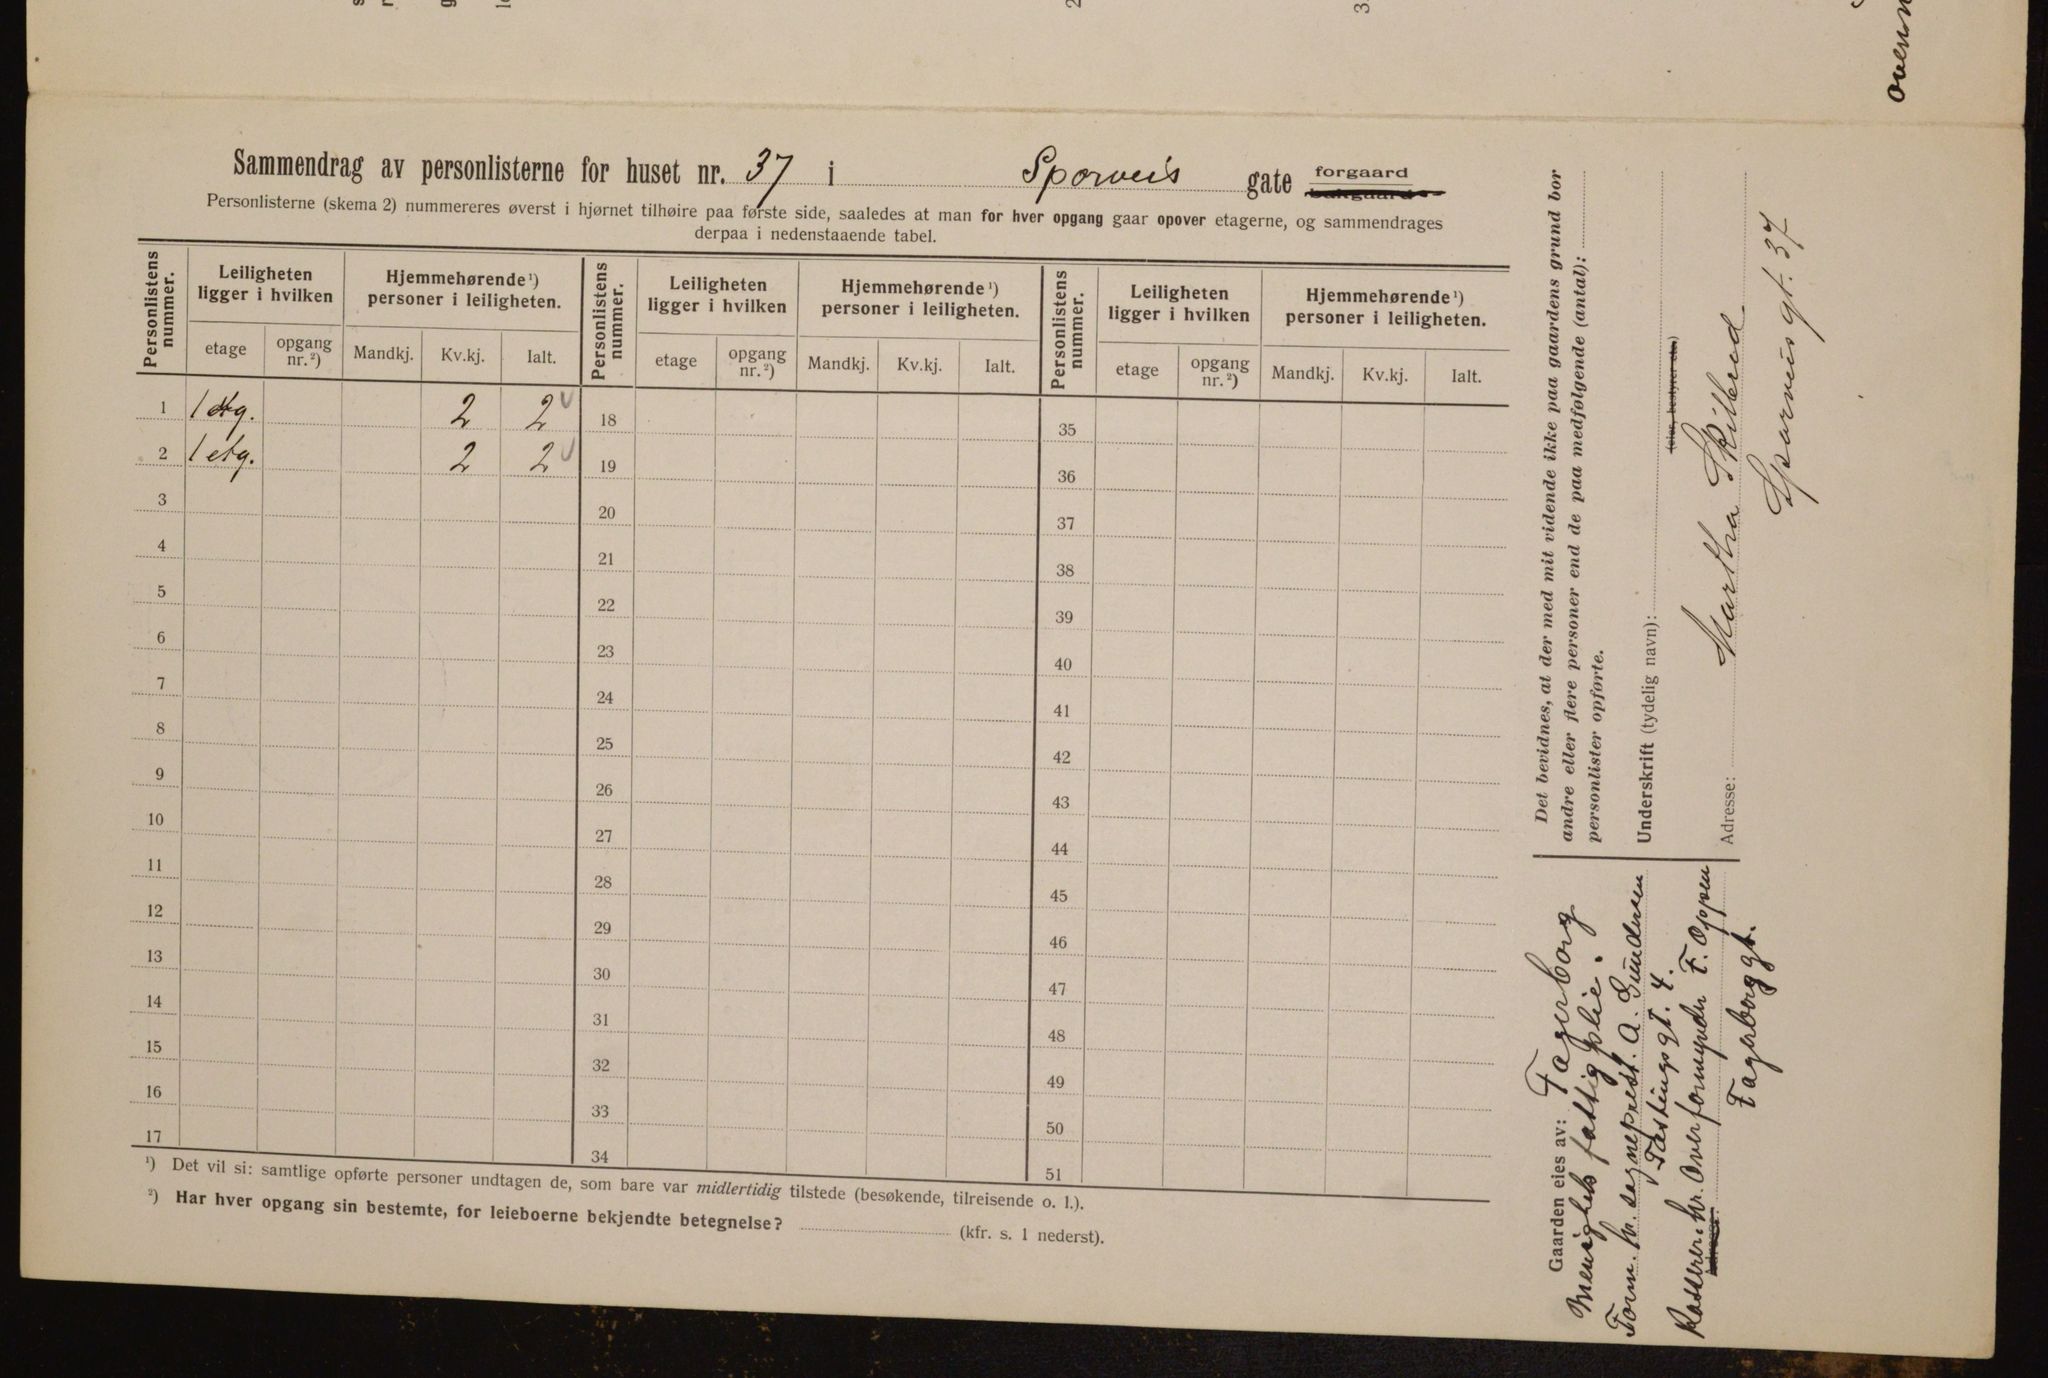 Sammendrag av personlisterne for huset nr. 37 i Sporveis gate forgaard ~~bakgaard~~
Personlisterne (skema 2) nummereres øverst i hjørnet tilhøire paa første side, saaledes at man for hver opgang gaar opover etagerne, og sammendrages
derpaa i nedenstaaende tabel.
Personlistens nummer. Leiligheten ligger i hvilken Hjemmehørende ¹) personer i leiligheten. Personlistens nummer. Leiligheten ligger i hvilken Hjemmehørende ¹) personer i leiligheten. Personlistens nummer. Leiligheten ligger i hvilken Hjemmehørende ¹) personer i leiligheten.
etage opgang nr. ²) Mandkj. Kv.kj. Ialt. etage opgang nr. ²) Mandkj. Kv.kj. Ialt. etage opgang nr. ²) Mandkj. Kv.kj. Ialt.
1 1 etg. 2 2 18 35
2 1 etg. 2 2 19 36
3 20 37
4 21 38
5 22 39
6 23 40
7 24 41
8 25 42
9 26 43
10 27 44
11 28 45
12 29 46
13 30 47
14 31 48
15 32 49
16 33 50
17 34 51
¹) Det vil si: samtlige opførte personer undtagen de, som bare var midlertidig tilstede (besøkende, tilreisende o. l.).
²) Har hver opgang sin bestemte, for leieboerne bekjendte betegnelse? (kfr. s. 1 nederst).
Det bevidnes, at der med mit vidende ikke paa gaardens grund bor
andre eller flere personer end de paa medfølgende (antal):
personlister opførte.
Underskrift (tydelig navn):
(eier, bestyrer etc.)
Martha Skilbred
Adresse: Sporveis gt. 37
Gaarden eies av: Fagerborg
Menighets fattigpleie.
Form. hr. sogneprest. A. Gundersen
gt. 4.
Kasserer. hr. Overformynder F. Oppen
Adresse:
Fagerborggt.